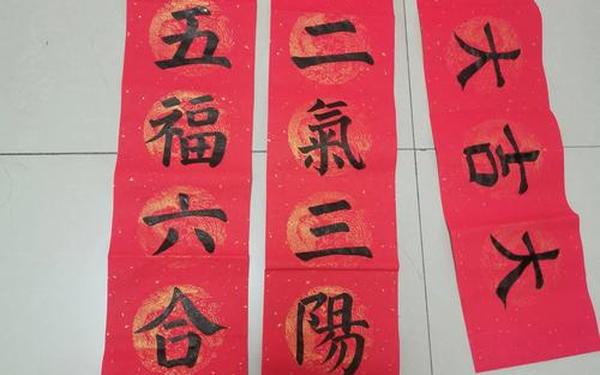 二氣三陽
五福六合
大吉大